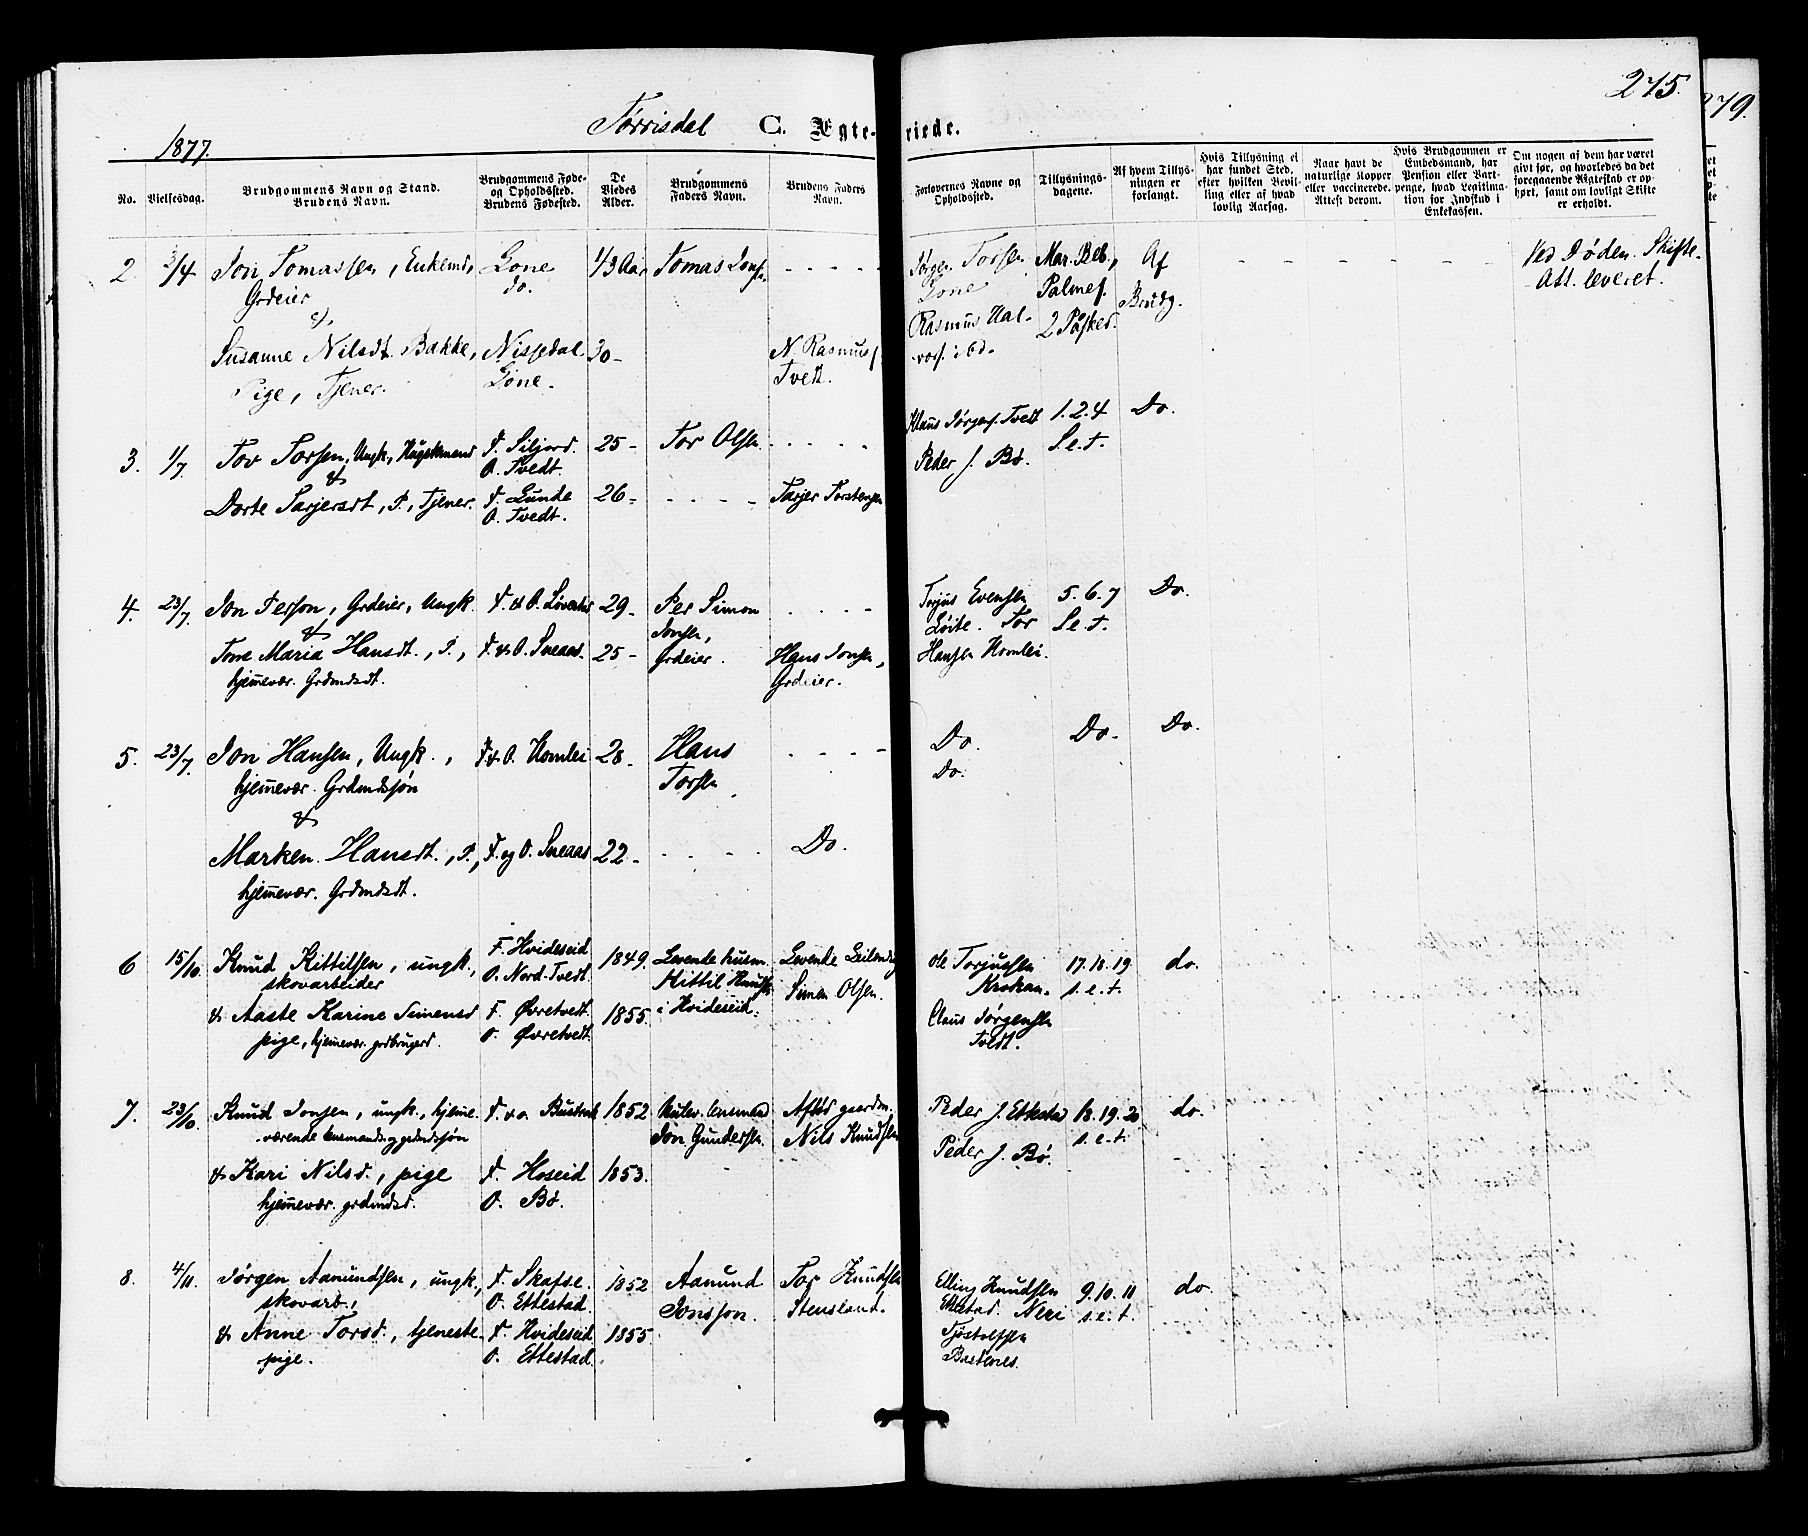 275.
279.
Tørrisdal C. Ægte- viede.
1877.
No. Vielsesdag. Brudgommens Navn og Stand. Brudens Navn. Brudgommens Føde- og Opholdssted. Brudens Fødested. De Viedes Alder. Brudgommens Faders Navn. Brudens Faders Navn. Forlovernes Navne og Opholdssted. Tillysnings- dagene. Af hvem Tillys- ningen er forlangt. Hvis Tillysning ei har fundet Sted, efter hvilken Bevil- ling eller af hvad lovlig Aarsag. Naar havt de naturlige Kopper eller vaccinerede. Attest derom. Hvis Brudgommen er Embedsmand, har Pension eller Vart- penge, hvad Legitima- tion for Indskud i Enkekassen. Om nogen af dem har været givt før, og hvorledes da det foregaaende Ægteskab er op- hørt, samt om lovligt Skifte er erholdt.
2 3/4 Jon Tomassen, Enkemd, Gone 1/3 Aar Tomas Jons. - - - - Jørgen Torsen Mar. Beb., Af - - - - - - Ved Døden. Skifte-
Grdeier do. Gone Palmes. Brudg. Att. leveret.
&
Rasmus Hal- 2 Påsked.
Susanne Nilsdt. Bakke, Nissedal 30- N. Rasmuss. vors. ibd.
Pige, Tjener. Gone. Tvedt.
3. 1/7 Tov Torsen, Ungk, F. Siljord. 25- Tor Olsen - - - - Klaus Jørgens. Tvedt 1.2.4 Do.
& O. Tvedt. Peder J. Bø. S.e.t.
Dorte Tarjersdt, P., Tjener. F. Lunde 26- - - - - Tarjer Torstensen
O. Tvedt.
4. 23/7 Jon Person, Grdeier, Ungk. F. & O. 29- Per Simon - - - - Torjus Evensen 5.6.7 Do.
& Jonsen, Tor S.e.t.
Tone Maria Hansdt., P., F. & O. Sneaas. 25- Grdeier. Hans Jonsen, Hansen Homlei.
hjemmevær. Grdmdsdt. Grdeier.
5. 23/7 Jon Hansen, Ungk., F. & O. Homlei 28- Hans - - - - Do. Do. Do.
hjemmevær. Grdmdssøn Torsen Do.
&
Marken Hansdt., P., F. og O. Sneaas 22- - - - - Do.
hjemmevær. Grdmdsdt.
6 15/10 Knud Kittilsen, ungk., F. Hvideseid 1849. Levende husm. Levende Ole Torjussen 17.18.19 do.
skovarbeider O. Nord. Tvedt. Kittil Knudsen Simen Olsen. Krokan. s.e.t.
& Aaste Karine Simensd F. Øvretvedt. 1855. i Hvideseid. Claus Jørgensen
pige, hjemmevær. grdbrugerd. O. Øvretvedt. Tvedt.
7. 23/10 Knud Jonsen, ungk., hjemme- F. & O. 1852 Jon Gundersen. Afdød gaardm. Peder J. Ettestad 18.19.20 do.
værende lensmands og grdmdssøn Nils Knudsen Peder J. Bø. s.e.t.
& Kari Nilsd., pige F. Hoseid 1853.
hjemmevær. grdmdsd. O. Bø.
8. 4/11. Jørgen Aanundsen, ungk, F. Skafse. 1852 Aanund Tor Knudsen Elling Knudsen 9.10.11 do.
skovarb., O. Ettestad. Jonsson. Stensland. Ettestad. Neri s.e.t.
& Anne Torsd., tjeneste- F. Hvideseid 1855. Tjøstolfsen
pige. O. Ettestad. Bastenes.